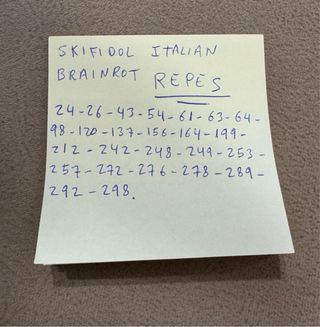 SKIFIDOL ITALIAN
BRAINROT REPES
24-26-43-54-61-63-64-
98-120-137-156-164-199-
212-242-248-249-253-
257-272-276-278-289-
292-298.